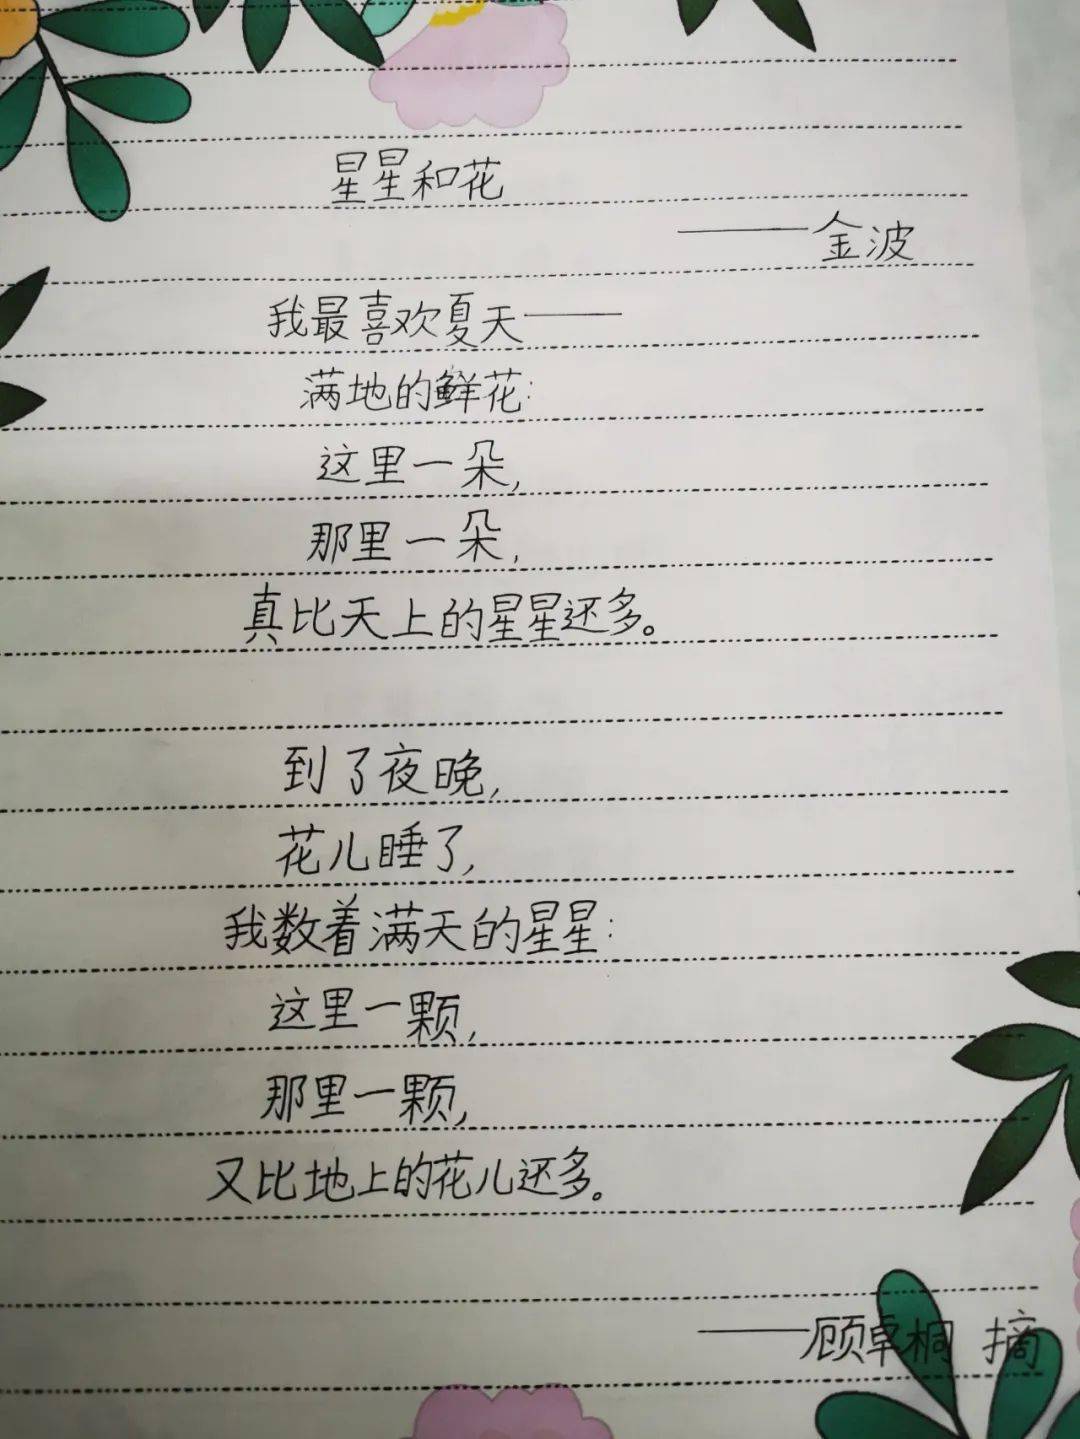 星星和花
——金波
我最喜欢夏天——
满地的鲜花:
这里一朵,
那里一朵,
真比天上的星星还多。
到了夜晚,
花儿睡了,
我数着满天的星星:
这里一颗,
那里一颗,
又比地上的花儿还多。
——顾卓桐 摘